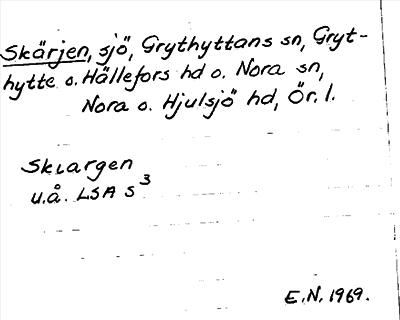 Skärjen, sjö, Grythyttans sn, Gryt-
hytte o. Hällefors hd o. Nora sn,
Nora o. Hjulsjö hd, Ör. l.
Skiargen
u.å. LSA S3
E.N. 1969.